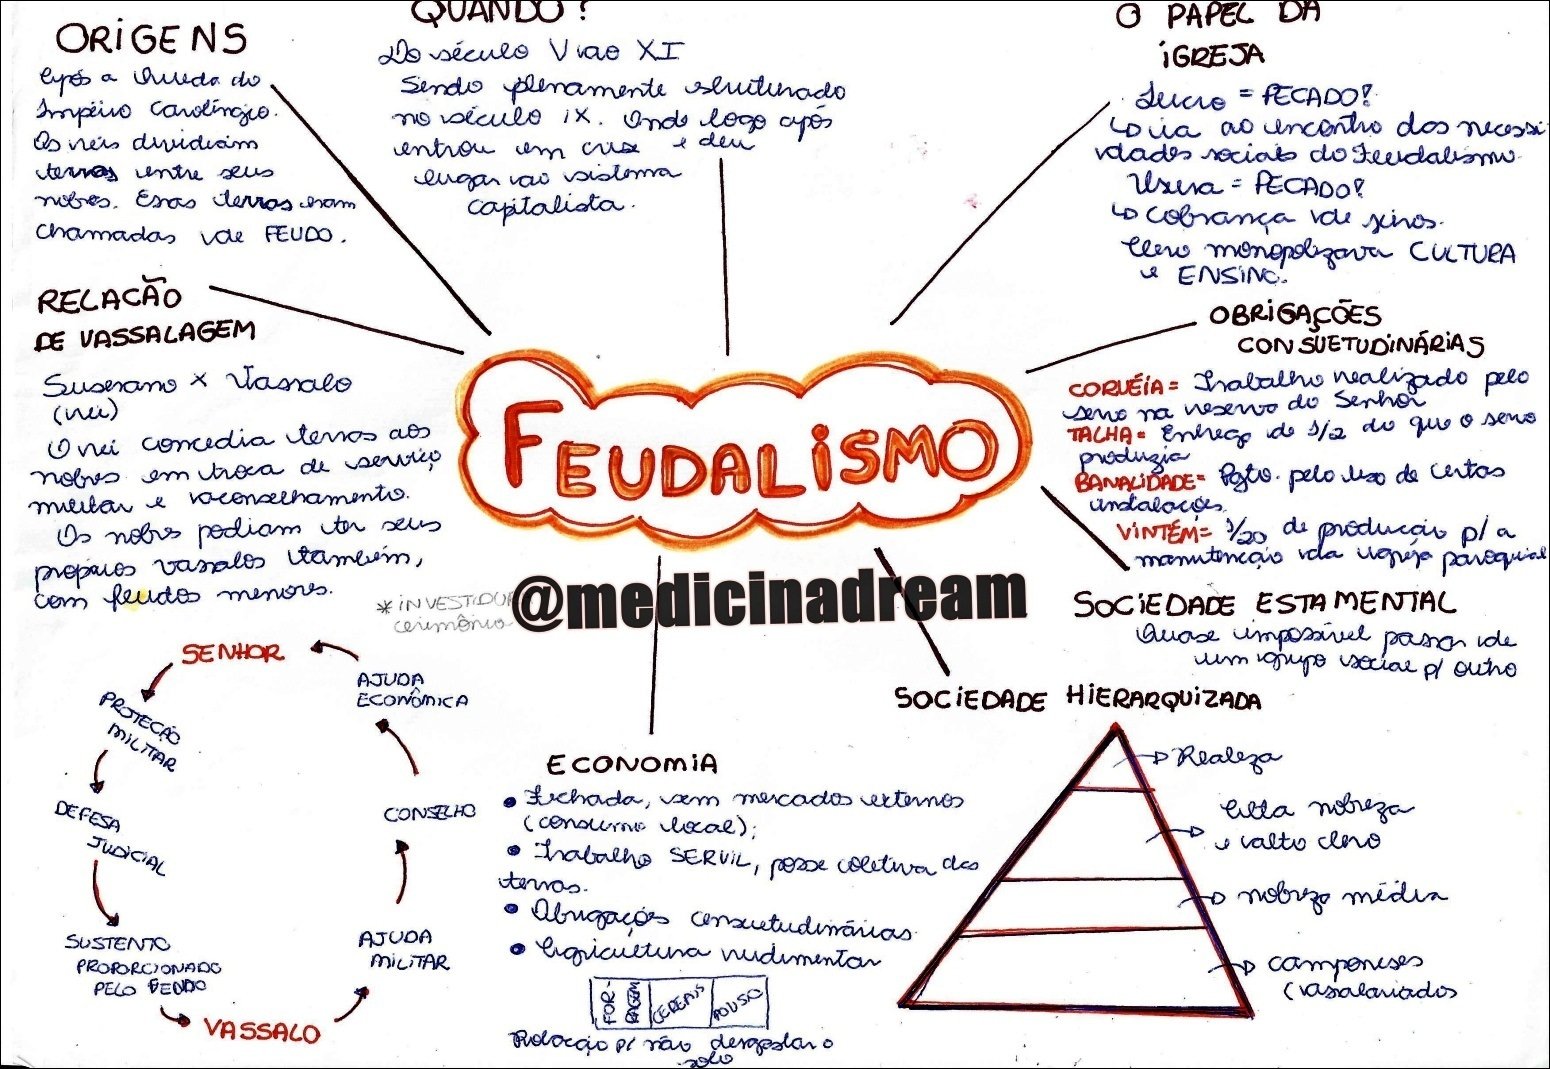 ORIGENS
Após a Queda do
Império Carolíngio.
Os reis dividiam
terras entre seus
nobres. Essas terras eram
chamadas de FEUDO.
QUANDO?
Do século V ao XI
Sendo plenamente estruturado
no século IX. Onde logo após
entrou em crise e deu
lugar ao sistema
capitalista.
O PAPEL DA
IGREJA
Lucro = PECADO!
↳ ia ao encontro dos necessi
dades sociais do Feudalismo
Usura = PECADO!
↳ Cobrança de juros.
Clero monopolizava CULTURA
e ENSINO.
RELACÃO
DE VASSALAGEM
Suserano x Vassalo
(rei)
O rei concedia terras aos
nobres em troca de serviço
militar e aconselhamento.
Os nobres podiam ter seus
próprios vassalos também,
com feudos menores.
* INVESTIDUR
cerimônia
FEUDALISMO
@medicinadream
OBRIGAÇÕES
CONSUETUDINÁRIAS
CORVÉIA = Trabalho realizado pelo
servo na reserva do Senhor
TALHA = Entrega de 1/2 do que o servo
produzia
BANALIDADE = Pgto. pelo uso de certas
instalações
VINTÉM = 1/20 de produção p/ a
manutenção da igreja paroquial
SOCIEDADE ESTAMENTAL
Quase impossível passar de
um grupo social p/ outro
SENHOR
PROTEÇÃO
MILITAR
DEFESA
JUDICIAL
SUSTENTO
PROPORCIONADO
PELO FENDO
VASSALO
AJUDA
MILITAR
CONSELHO
AJUDA
ECONÔMICA
ECONOMIA
• Fechada, sem mercados externos
(consumo local);
• Trabalho SERVIL, posse coletiva das
terras.
• Obrigações consuetudinárias
• Agricultura rudimentar
FOR-
RAGEM
CEREAIS
POUSO
Rotação p/ não desgastar o
solo
SOCIEDADE HIERARQUIZADA
Realeza
Alta nobreza
e alto clero
nobreza média
camponeses
(vassalariados